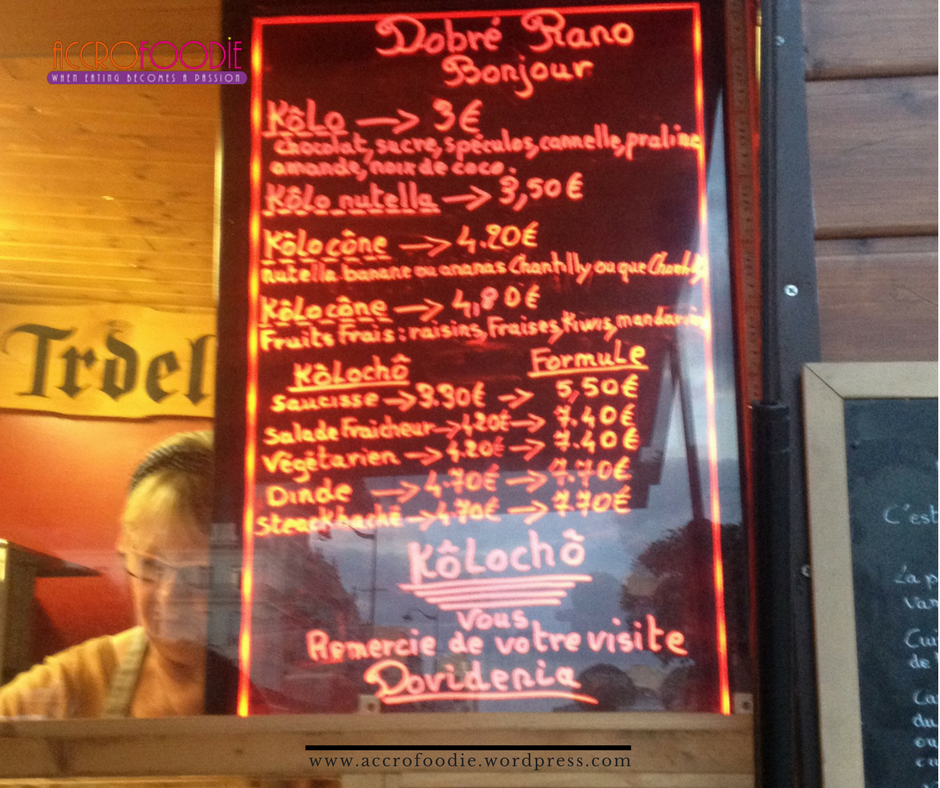 ACCROFOODIE
WHEN EATING BECOMES A PASSION
Dobré Rano
Bonjour
KôLo → 3€
chocolat, sucre, spéculos, cannelle, praline
amande, noix de coco.
Kôlo nutella → 3,50€
Kôlo cône → 4.20€
nutella banane ou ananas Chantilly ou que Chantilly
Kôlo cône → 4,80€
Fruits Frais : raisins, Fraises, Kiwis, mandarine
KôLochô Formule
saucisse → 3.30€ → 5,50€
Salade Fraicheur → 4.20€ → 7.40€
Végétarien → 4.20€ → 7.40€
Dinde → 4.70€ → 7.70€
Steack haché → 4.70€ → 7.70€
KôLochô
Vous
Remercie de votre visite
Dovidenia
Trdel
C'est
La p
Van
Cui
de l
du
ou
www.accrofoodie.wordpress.com